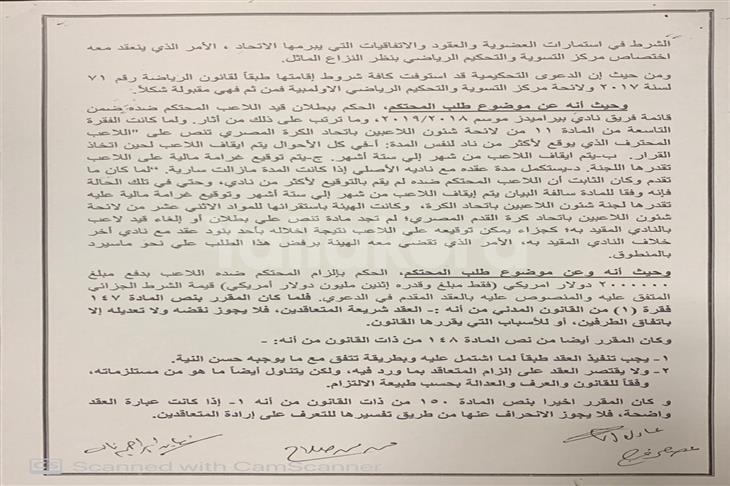 الشرط في استمارات العضوية والعقود والاتفاقيات التي يبرمها الاتحاد ، الأمر الذي ينعقد معه
اختصاص مركز التسوية والتحكيم الرياضي بنظر النزاع الماثل.
ومن حيث إن الدعوى التحكيمية قد استوفت كافة شروط إقامتها طبقاً لقانون الرياضة رقم ٧١
لسنة ٢٠١٧ ولائحة مركز التسوية والتحكيم الرياضي الاولمبية فمن ثم فهي مقبولة شكلاً.
وحيث أنه عن موضوع طلب المحتكم، الحكم ببطلان قيد اللاعب المحتكم ضده ضمن
قائمة فريق نادي بيراميدز موسم ٢٠١٩/٢٠١٨، وما ترتب على ذلك من أثار. ولما كانت الفقرة
التاسعة من المادة ١١ من لائحة شئون اللاعبين باتحاد الكرة المصري تنص على "اللاعب
المحترف الذي يوقع لأكثر من ناد لنفس المدة: أ-في كل الأحوال يتم ايقاف اللاعب لحين اتخاذ
القرار. ب-يتم ايقاف اللاعب من شهر إلي ستة أشهر. ج-يتم توقيع غرامة مالية على اللاعب
تقدرها اللجنة. د-يستكمل مدة عقده مع ناديه الأصلي إذا كانت المدة مازالت سارية. "لما كان ما
تقدم وكان الثابت أن اللاعب المحتكم ضده لم يقم بالتوقيع لأكثر من نادي، وحتي في تلك الحالة
فإنه وفقا للمادة سالفة البيان يتم إيقاف اللاعب من شهر إلي ستة أشهر وتوقيع غرامة مالية عليه
تقدرها لجنة شئون اللاعبين باتحاد الكرة، وكانت الهيئة باستقرائها للمواد الاثني عشر من لائحة
شئون اللاعبين باتحاد كرة القدم المصري؛ لم تجد مادة تنص علي بطلان أو إلغاء قيد لاعب
بالنادي المقيد به؛ كجزاء يمكن توقيعه علي اللاعب نتيجة اخلاله بأحد بنود عقد مع نادي أخر
خلاف النادي المقيد به، الأمر الذي تقضي معه الهيئة برفض هذا الطلب علي نحو ماسيرد
بالمنطوق.
وحيث أنه وعن موضوع طلب المحتكم، الحكم بإلزام المحتكم ضده اللاعب بدفع مبلغ
٢٠٠٠٠٠٠ دولار امريكي (فقط مبلغ وقدره إثنين مليون دولار أمريكي) قيمة الشرط الجزائي
المتفق عليه والمنصوص عليه بالعقد المقدم في الدعوي. فلما كان المقرر بنص المادة ١٤٧
فقرة (١) من القانون المدني من أنه :- العقد شريعة المتعاقدين، فلا يجوز نقضه ولا تعديله إلا
باتفاق الطرفين، أو للأسباب التي يقررها القانون.
وكان المقرر أيضا من نص المادة ١٤٨ من ذات القانون من أنه: -
١- يجب تنفيذ العقد طبقاً لما اشتمل عليه وبطريقة تتفق مع ما يوجبه حسن النية.
٢- ولا يقتصر العقد على إلزام المتعاقد بما ورد فيه، ولكن يتناول أيضاً ما هو من مستلزماته،
وفقاً للقانون والعرف والعدالة بحسب طبيعة الالتزام.
و كان المقرر اخيرا بنص المادة ١٥٠ من ذات القانون من أنه ١- إذا كانت عبارة العقد
واضحة، فلا يجوز الانحراف عنها من طريق تفسيرها للتعرف على إرادة المتعاقدين.
CS Scanned with CamScanner